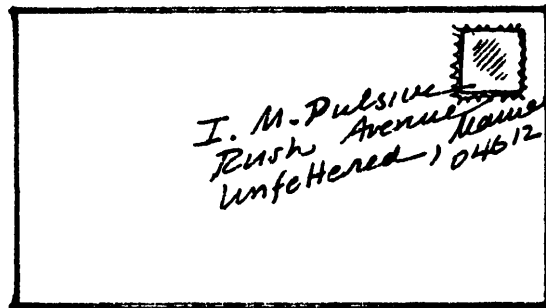 I. M. Pulsive
Rush Avenue
Unfettered, Maine
04612